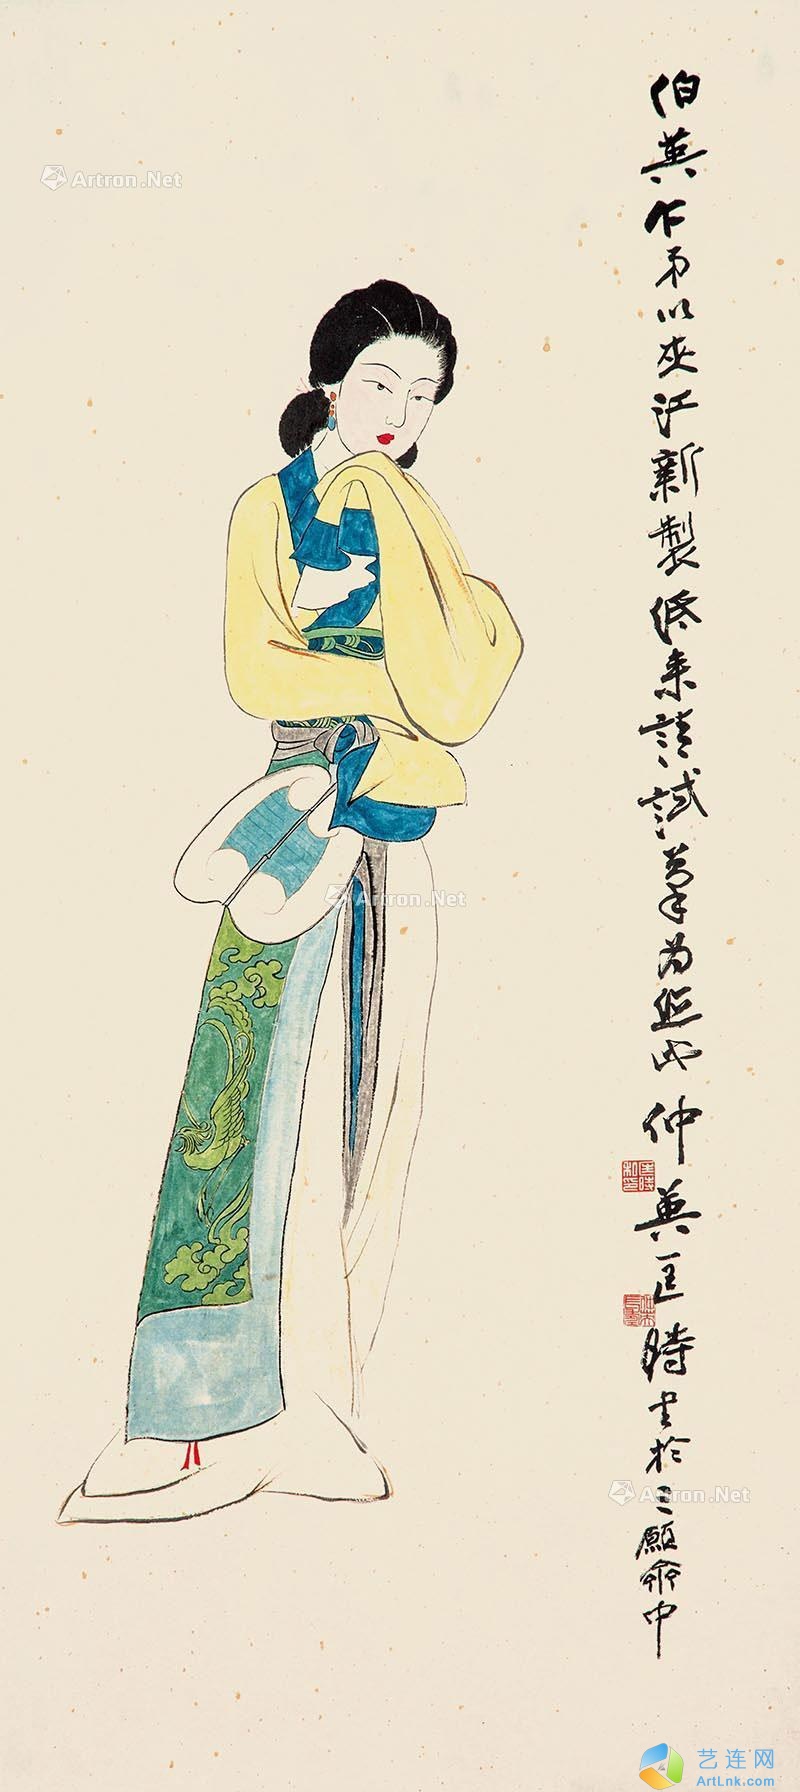 伯英仁弟以夾江新製紙来請試筆为應此仲英匡時書於三願齋中
Artron.Net
Artron.Net
Artron.Net
艺连网
ArtLnk.com